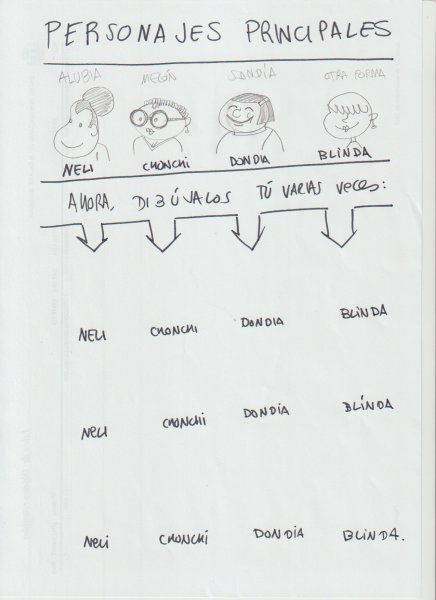 PERSONAJES PRINCIPALES
ALUBIA MELÓN SANDÍA OTRA FORMA
NELI CHONCHI DONDIA BLINDA
AHORA, DIBÚJALOS TÚ VARIAS VECES:
NELI CHONCHI DONDIA BLINDA
NELI CHONCHI DONDIA BLINDA
NELI CHONCHI DONDIA BLINDA.